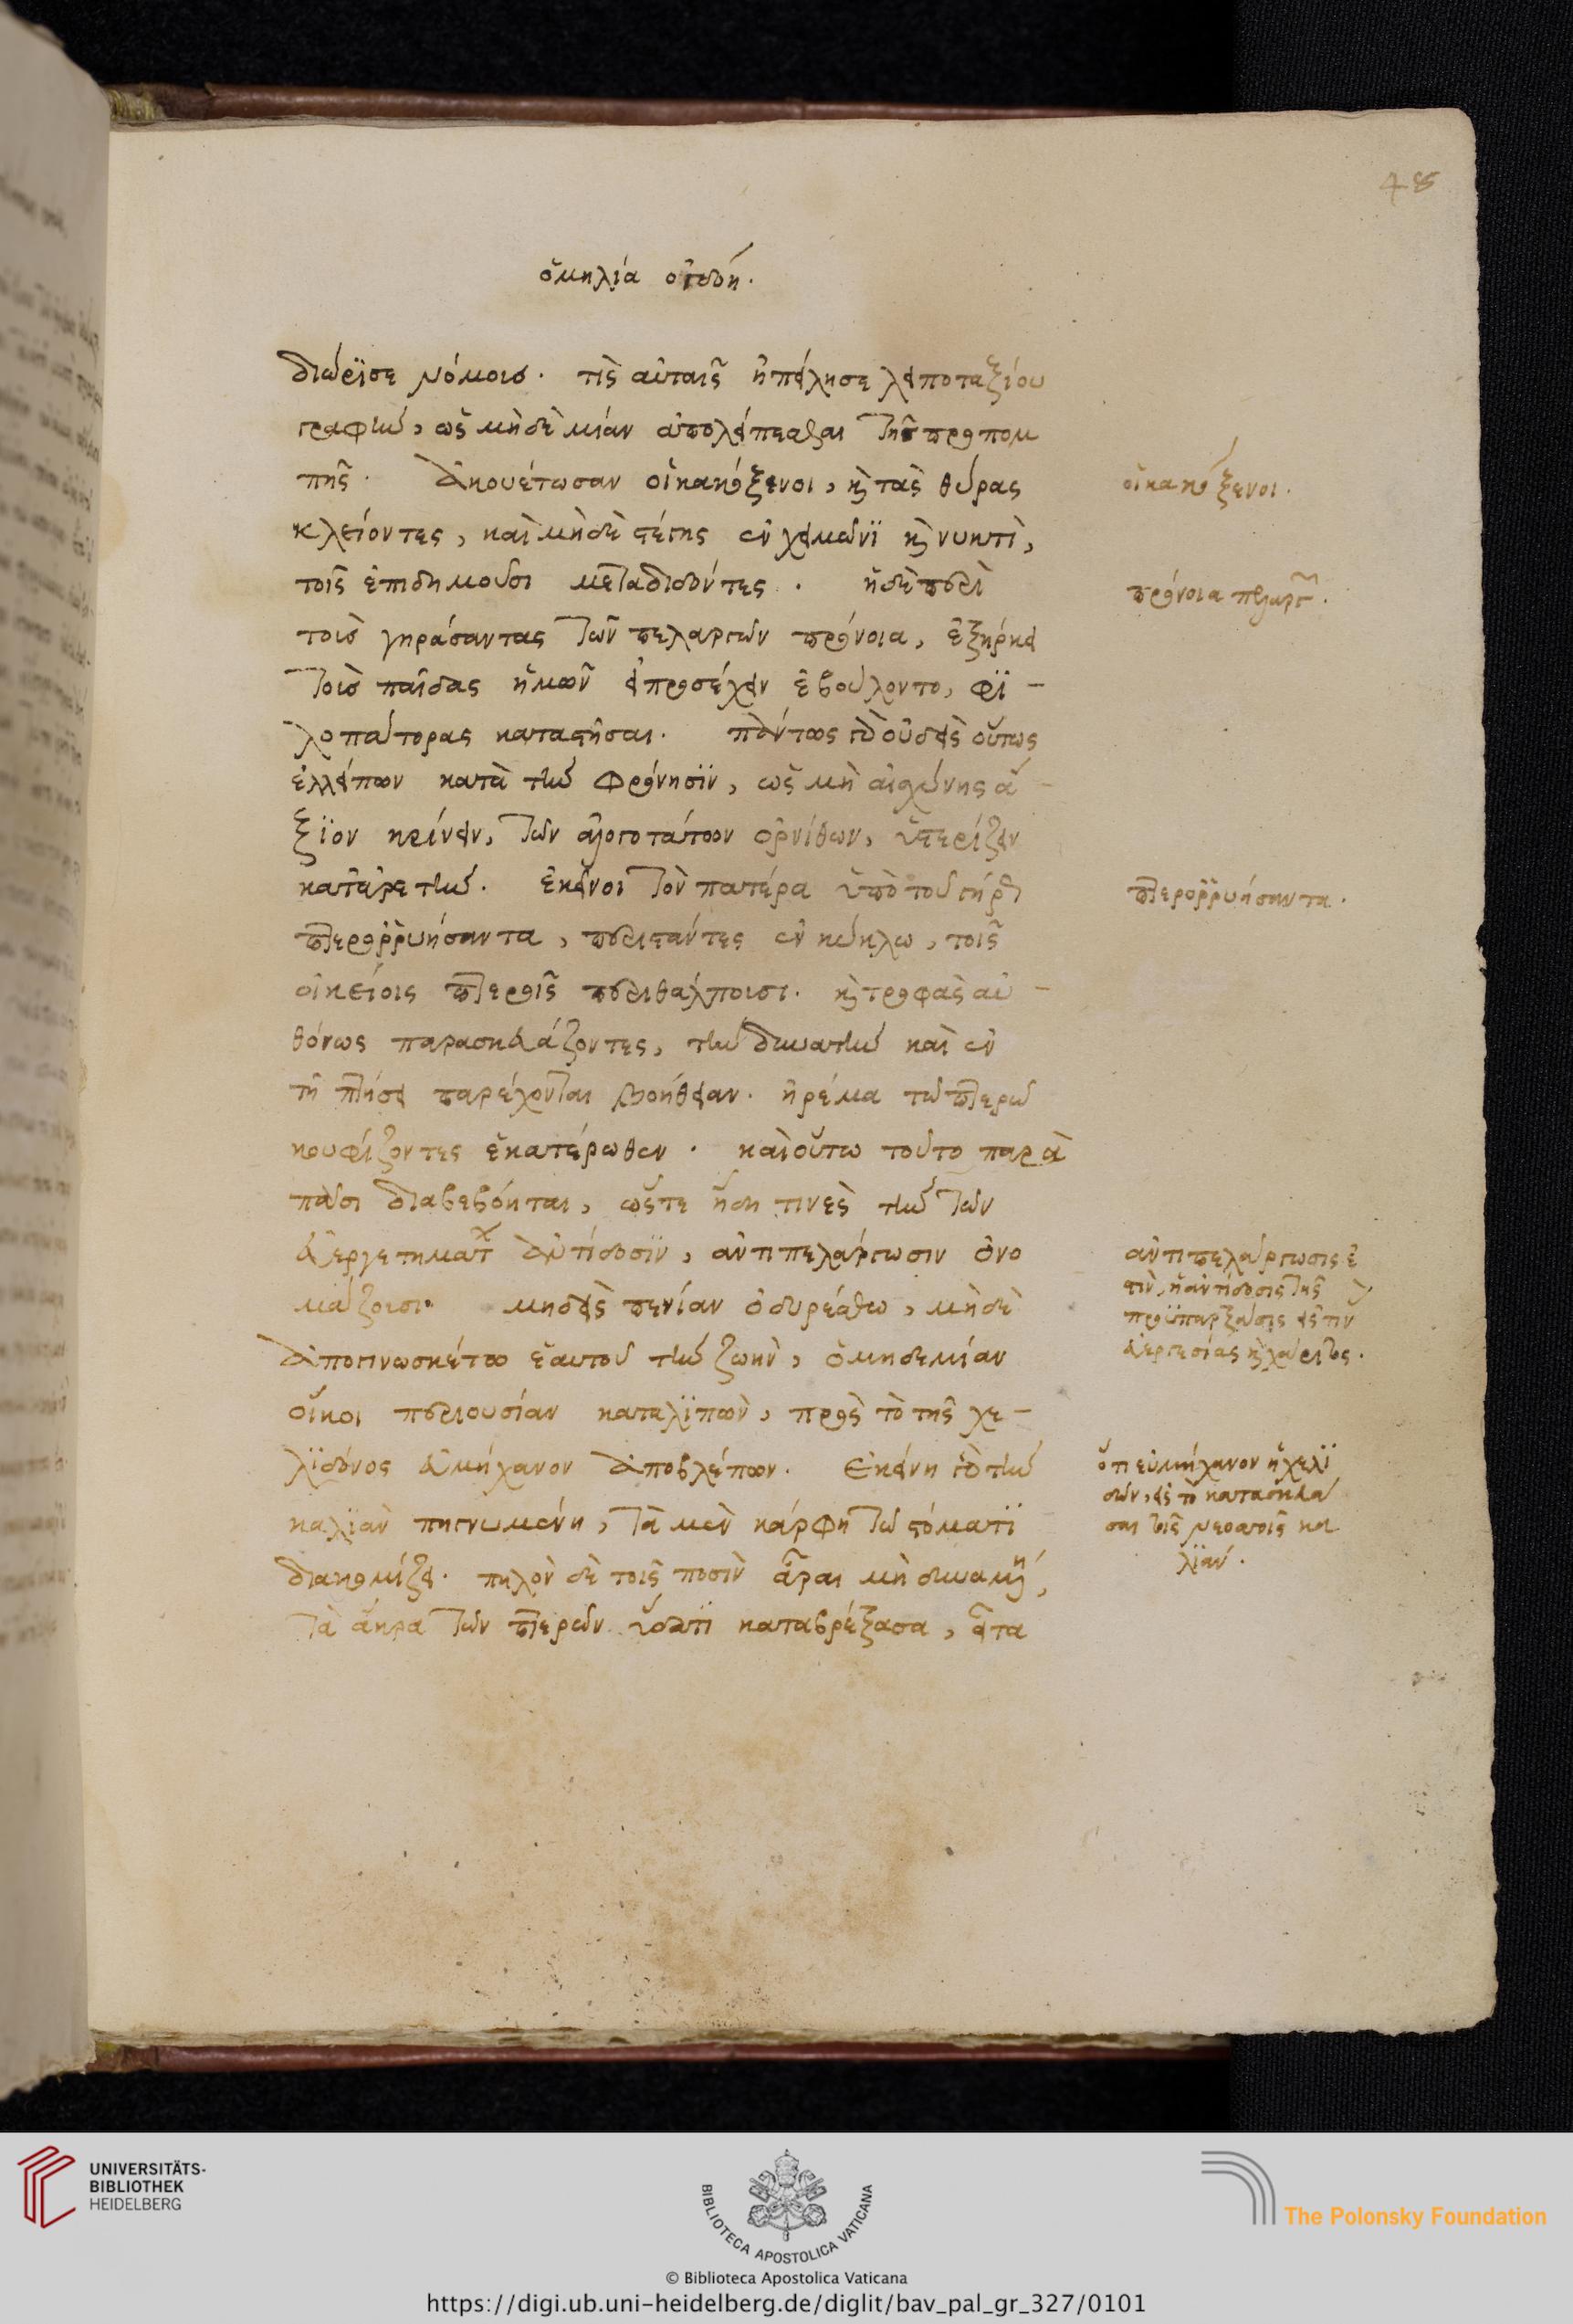 48
ὁμηλία ὀγδόη.
διώρϊσε νόμοις. τίς αὐταῖς ἠπείλησε λειποταξίου
γραφὴν, ὡς μὴ δὲ μίαν ἀπολείπεσθαι τῆς προπομ
πῆς. Ἀκουέτωσαν οἱ κακόξενοι, κὶ τὰς θύρας
κλείοντες, καὶ μὴ δὲ στέγης ἐν χειμῶνϊ κὶ νυκτὶ,
τοῖς ἐπιδημοῦσι μεταδιδόντες. ἡ δὲ περὶ
τοὺς γηράσαντας τῶν πελαργῶν πρόνοια, ἐξήρκει
τοὺς παῖδας ἡμῶν εἰ προσέχειν ἐβούλοντο, φϊ-
λοπάτορας καταστῆσαι. πάντως γὰρ οὐδεὶς οὕτως
ἐλλείπων κατὰ τὴν φρόνησϊν, ὡς μὴ αἰσχύνης ἄ-
ξϊον κρίνειν, τῶν ἀλογοτάτων ὀρνίθων, ὑστερίζειν
κατἀρετήν. ἐκεῖνοι τὸν πατέρα ὑπὸ τοῦ γήρως
πτερορρυήσαντα, περιστάντες ἐν κύκλω, τοῖς
οἰκείοις πτεροῖς περιθάλπουσι. κὶ τροφὰς ἀφ-
θόνως παρασκευάζοντες, τὴν δυνατὴν καὶ ἐν
τῆ πτήσει παρέχονται βοήθειαν. ἠρέμα τῶ πτερῶ
κουφίζοντες ἑκατέρωθεν. καὶ οὕτω τοῦτο παρὰ
πᾶσι διαβεβόηται, ὥστε ἤδη τινὲς τὴν τῶν
εὐεργετημάτων ἀντίδοσϊν, ἀντιπελάργωσιν ὀνο
μάζουσι. μηδεὶς πενίαν ὀδυρέσθω, μὴ δὲ
ἀπογινωσκέτω ἑαυτοῦ τὴν ζωὴν, ὁ μηδεμίαν
οἴκοι περιουσίαν καταλϊπὼν, πρὸς τὸ τῆς χε-
λϊδόνος εὐμήχανον ἀποβλέπων. Ἐκείνη γὰρ τὴν
καλϊὰν πηγνυμένη, τὰ μὲν κάρφη τῶ στόματϊ
διακομίζει. πηλὸν δὲ τοῖς ποσὶν ἆραι μὴ δυναμένη,
τὰ ἄκρα τῶν πτερῶν ὕδατϊ καταβρέξασα, εἶτα
οἱ κακόξενοι.
πρόνοια πελαργῶν.
πτερορρυήσαντα.
ἀντιπελάργωσις ἐ
στιν, ἡ ἀντίδοσις τῆς
προϋπαρξάσης εἴς τιν
εὐεργεσίας κὶ χάριτος.
ὅτι εὐμήχανον ἡ χελϊ
δών, εἰς τὸ κατασκευά
σαι τοῖς νεοσσοῖς κα
λϊάν.
UNIVERSITÄTS-
BIBLIOTHEK
HEIDELBERG
BIBLIOTECA APOSTOLICA VATICANA
The Polonsky Foundation
© Biblioteca Apostolica Vaticana
https://digi.ub.uni-heidelberg.de/diglit/bav_pal_gr_327/0101